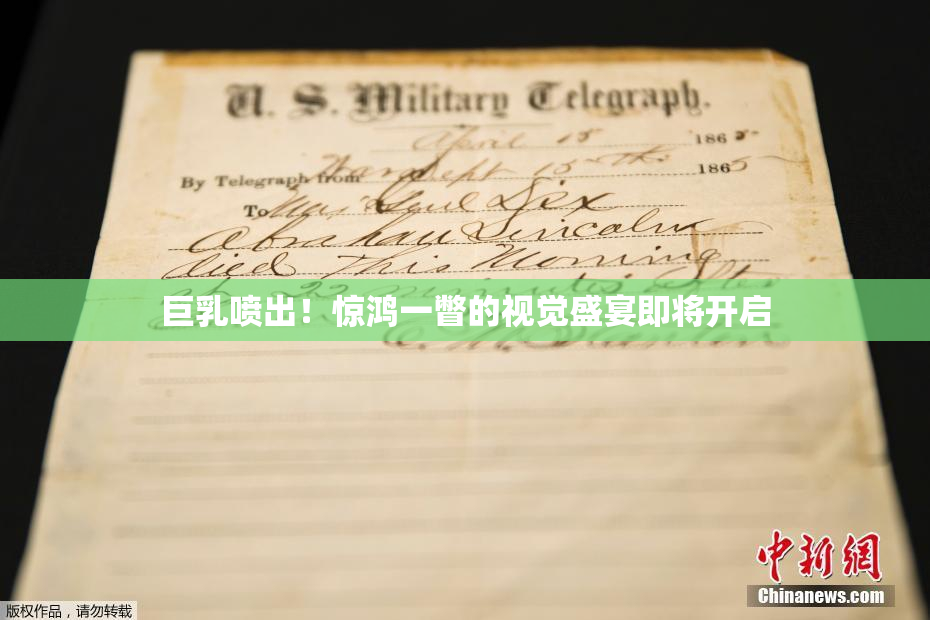 U. S. Military Telegraph.
April 15 1865
By Telegraph from War Dept 15th 1865
To Maj Genl Dix
Abraham Lincoln
died This Morning
at 22 minutes after
巨乳喷出！惊鸿一瞥的视觉盛宴即将开启
E. M. Stanton
中新网
Chinanews.com
版权作品，请勿转载